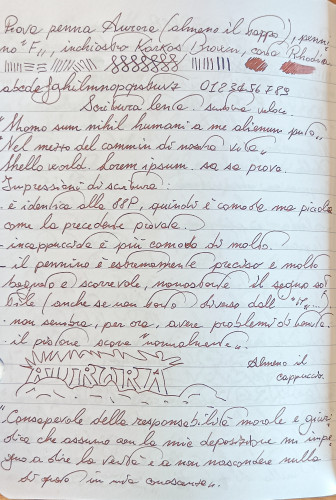 Prova penna Aurora (almeno il tappo), penni
no "F", inchiostro Karkos Brown, carta Rhodia
abcdefghilmnopqrstuvz 0123456789
Scrittura lenta. scrittura veloce.
"Homo sum nihil humani a me alienum puto"
"Nel mezzo del cammin di nostra vita"
hello world. Lorem ipsum. sa sa prova.
Impressioni di scrittura:
- è identica alla 88P, quindi è comoda ma piccola
come la precedente provata.
- incappucciata è più comoda di molto.
- il pennino è estremamente preciso e molto
bagnato e scorrevole, nonostante il segno sot
tile (anche se non tanto diverso dall'
- non sembra, per ora, avere problemi di
- il pistone scorre "normalmente".
AURORA
Almeno il
cappuccio.
"Consapevole della responsabilità morale e giuri
dica che assumo con la mia deposizione mi impe
gno a dire la verità e a non nascondere nulla
di quanto in mia conoscenza".